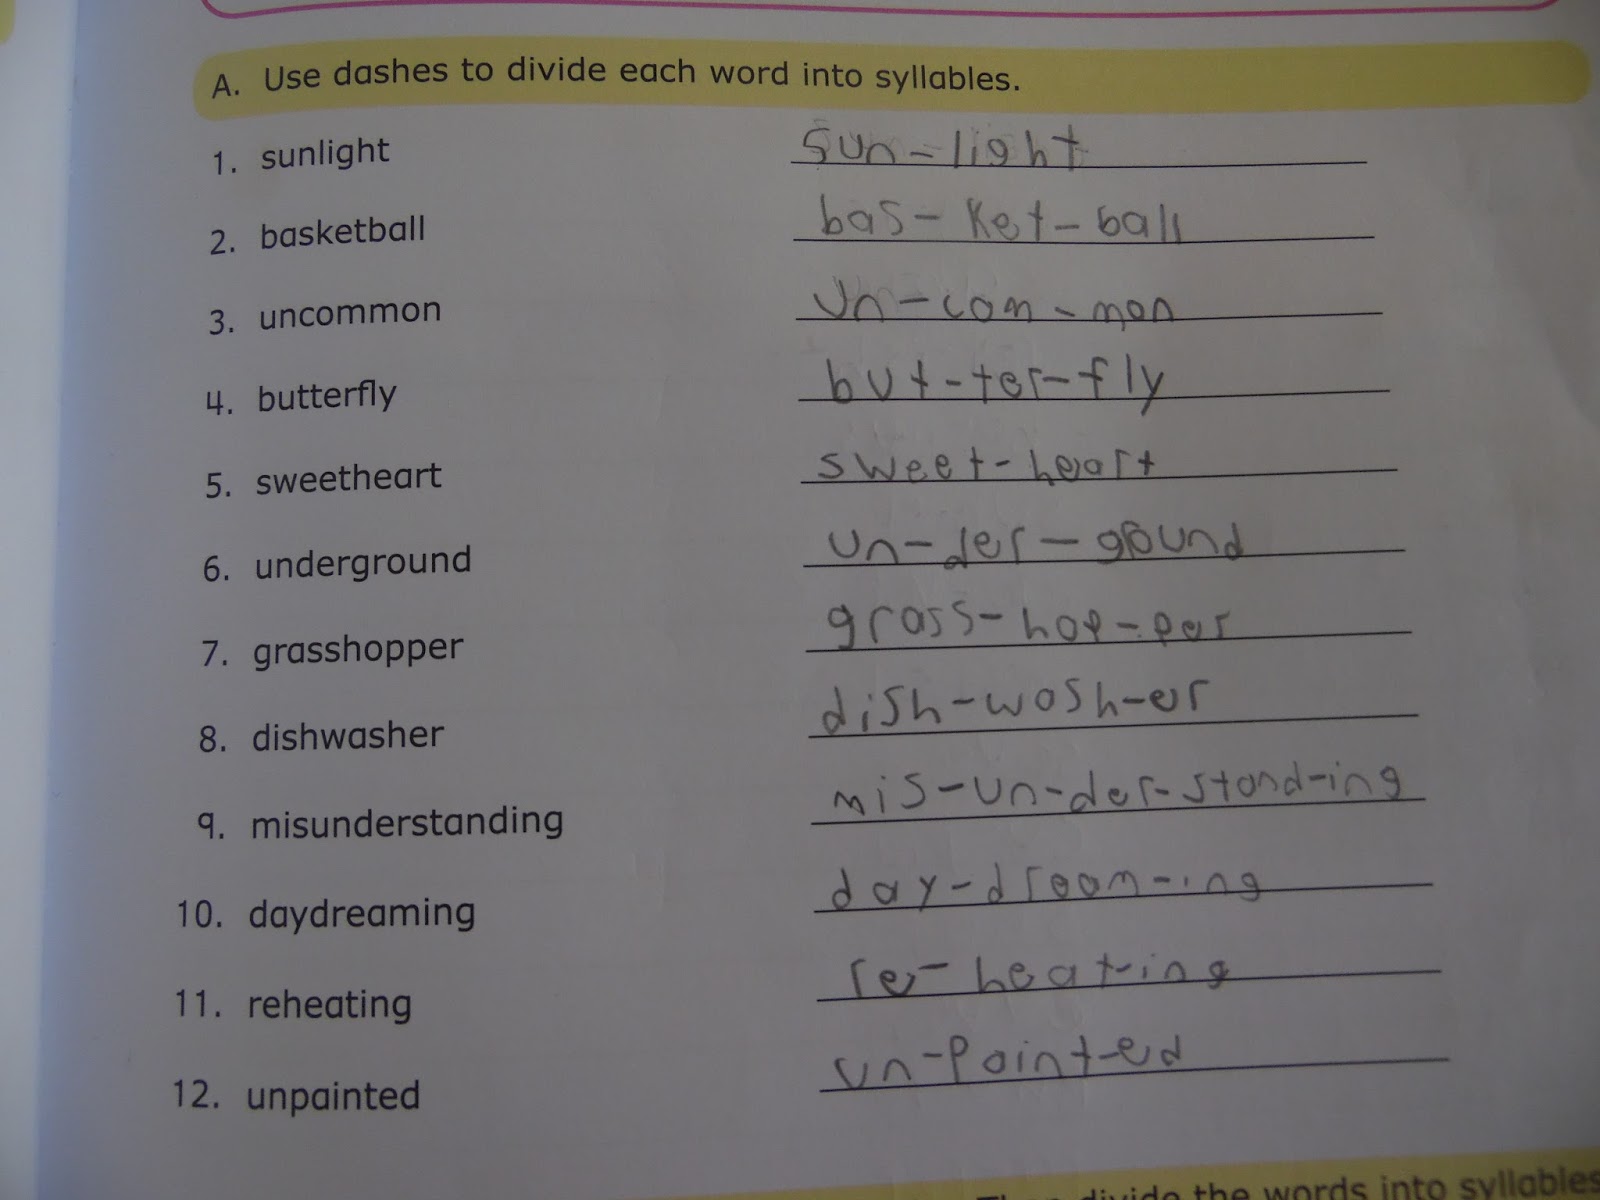 A. Use dashes to divide each word into syllables.
1. sunlight sun-light
2. basketball bas-ket-ball
3. uncommon un-com-mon
4. butterfly but-ter-fly
5. sweetheart sweet-heart
6. underground un-der-ground
7. grasshopper grass-hop-per
8. dishwasher dish-wash-er
9. misunderstanding mis-un-der-stand-ing
10. daydreaming day-dream-ing
11. reheating re-heat-ing
12. unpainted un-paint-ed
divide the words into syllables